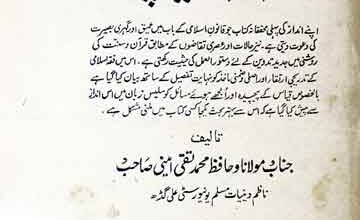 اپنے انداز کی پہلی محققانہ کتاب جو قانونِ اسلامی کے باب میں عمیق اور گہری بصیرت
کی دعوت دیتی ہے، نیز حالات اور عصری تقاضوں کے مطابق قرآن و سنت کی
روشنی میں جدید تدوین کے لئے دستور العمل کی حیثیت رکھتی ہے۔ اس میں فقہ اسلامی
کے تدریجی ارتقار اور اصلی و ضمنی ماخذ کو نہایت تفصیل کے ساتھ بیان کیا گیا ہے
بالخصوص قیاس کے پیچیدہ اور اُلجھے ہوئے مسائل کو سلیس زبان میں اس انداز
سے پیش کیا گیا ہے کہ اس سے بہتر بحث یکجا کسی کتاب میں ملنی مشکل ہے۔
تالیف
جناب مولانا و حافظ محمد تقی امینی صاحب
ناظم دینیات مسلم یونیورسٹی علی گڈھ